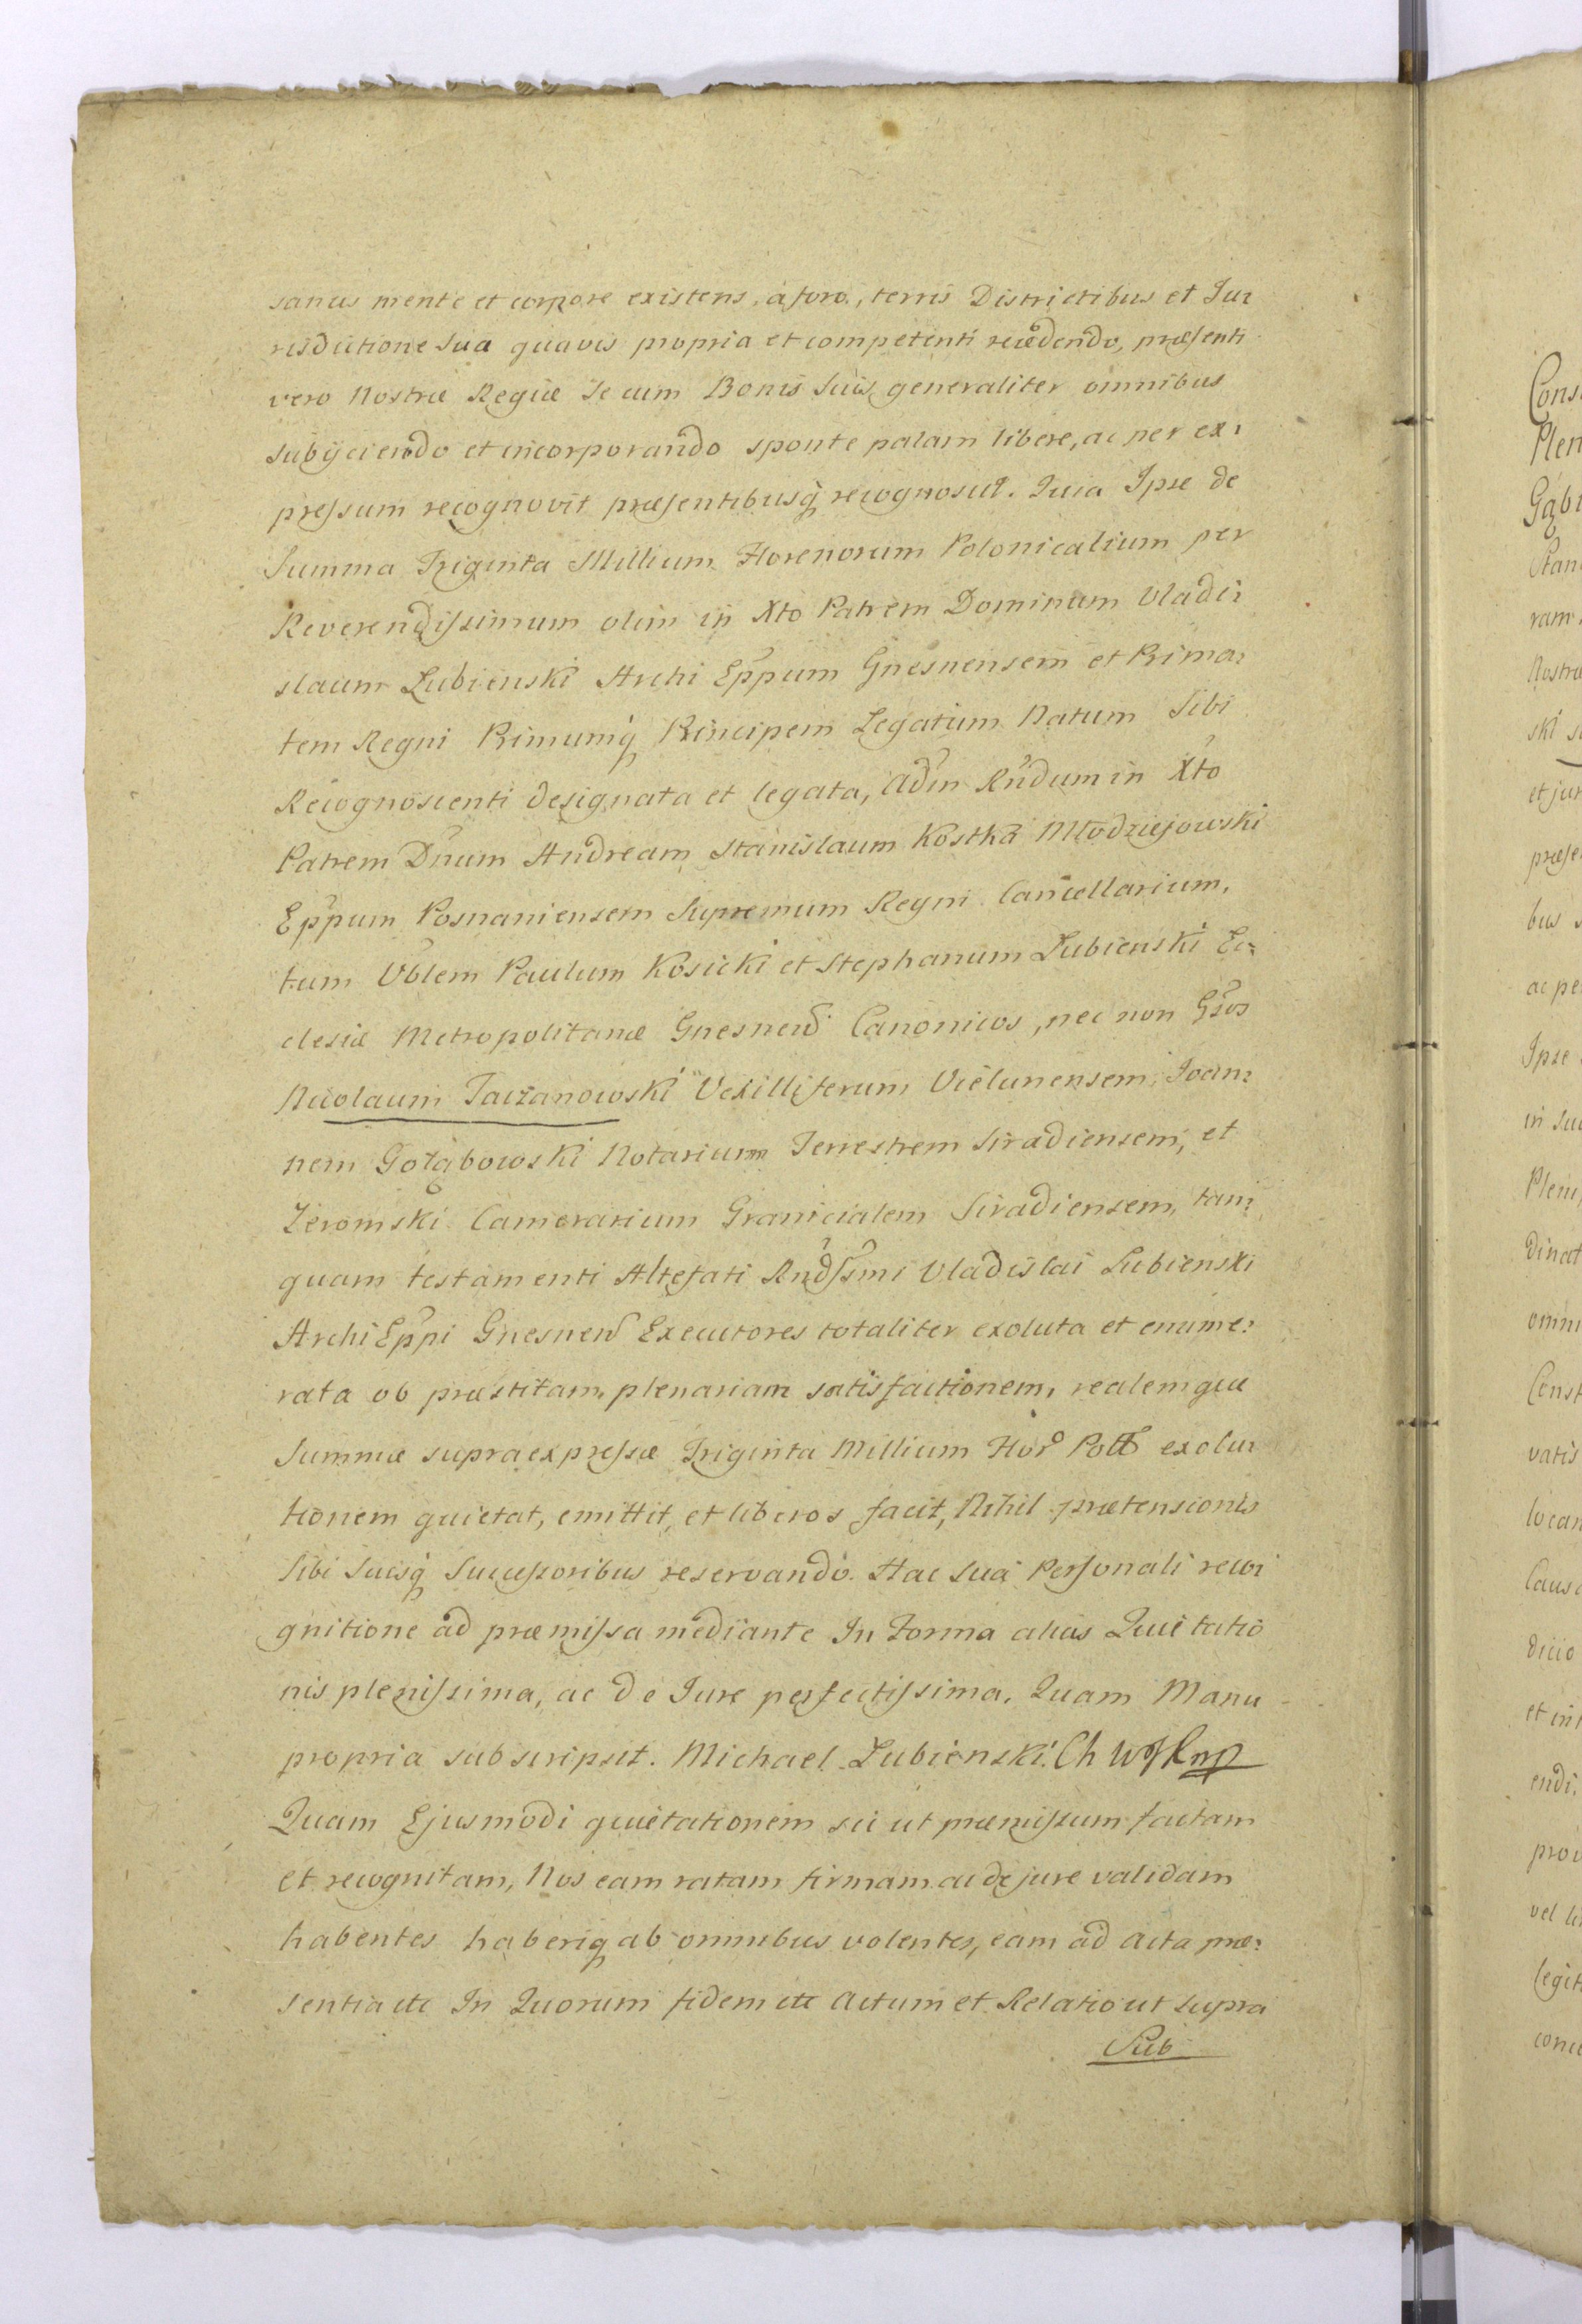 sanus mente et corpore existens, a foro, terris Districtibus et Ju:
risdictione Sua quavis propria et competenti recedendo, præsenti
vero Nostræ Regiæ se cum Bonis Suis generaliter omnibus
subijciendo et incorporando sponte palam libere, ac per ex:
pressum recognovit præsentibusq́ recognoscit. Quia Ipse de
Summa Triginta Millium Florenorum Polonicalium per
Reverendissimum olim in Xto Patrem Dominum Vladi:
slaum Łubienski Archi Eppum Gnesnensem et Prima:
tem Regni Primumq́ Principem Legatum Natum Sibi
Recognoscenti designata et legata, adm Rndum in Xto
Patrem Dnum Andream Stanislaum Kostka Młodziejowski
Eppum Posnaniensem Supremum Regni Cancellarium,
tum Vblem Paulum Kosicki et Stephanum Łubienski Ec:
clesiæ Metropolitanæ Gnesnen Canonicos, nec non Gsos
Nicolaum Taczanowski Vexilliferum Vielunensem, Joan:
nem Gołąbowski Notarium Terrestrem Siradiensem, et
Zeromski Camerarium Granicialem Siradiensem, tam:
quam testamenti Altefati Rndssmi Vladislai Łubienski
Archi Eppi Gnesnen Executores totaliter exoluta et enume:
rata ob præstitam plenariam satisfactionem, realemque
Summæ supraexpressæ Triginta Millium Flor Poll exolu:
tionem quietat, emittit, et liberos facit, Nihil prætensionis
Sibi Suisq́ Successoribus reservando. Hac Sua Personali reco:
gnitione ad præmissa mediante In Forma alias Quietatio
nis plenissima, ac de Jure perfectissima. Quam Manu
propria subscripsit. Michael Łubienski. Ch W mp
Quam Ejusmodi quietationem sic ut præmissum factam
et recognitam, Nos eam ratam firmam ac de jure validam
habentes haberiq́ ab omnibus volentes, eam ad acta præ:
sentia etc In Quorum fidem etc Actum et Relatio ut supra
Sub
Cons
Plen
Gąb
ram
Nostræ
ski
et jur
præse
bus
ac pe
Ipse
in Su
Plen
omn
Cons
vatis
locan
Caus
dicio
et in
endi,
prov
vel li
legit